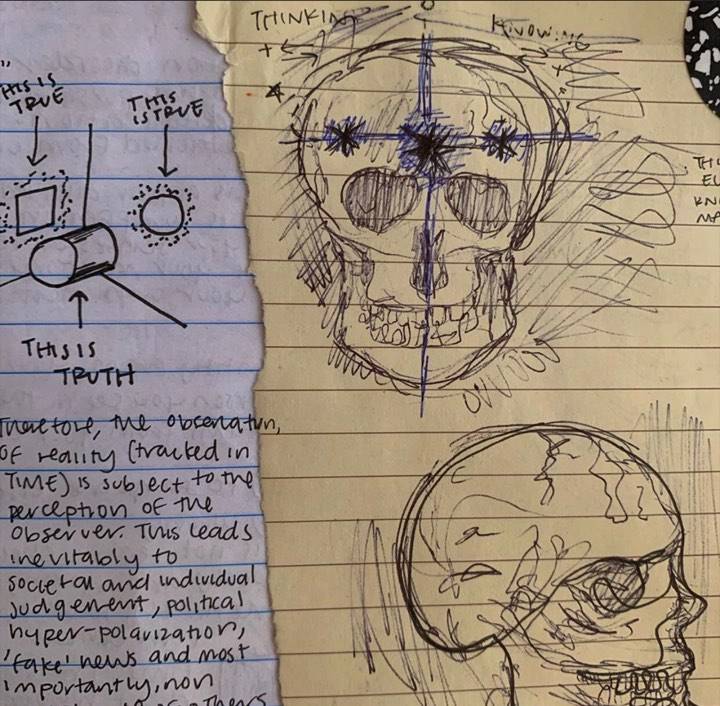 THIS IS
TRUE
THIS
IS TRUE
THIS IS
TRUTH
Therefore, the observation,
OF reality (tracked in
TIME) is subject to the
perception OF the
observer. This leads
inevitably to
societal and individual
judgement, political
hyper-polarization,
'fake' news and most
importantly, non
THINKING
KNOWING